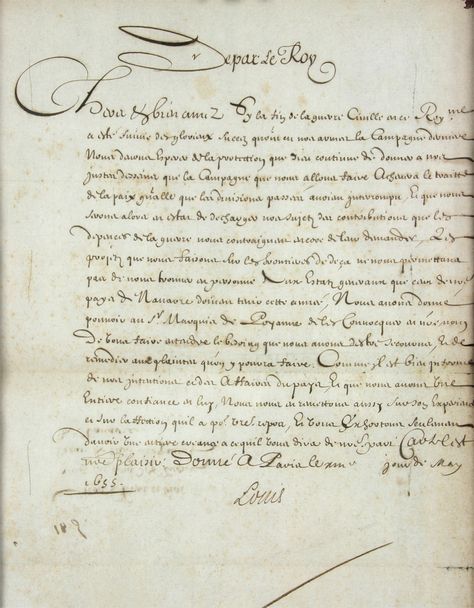 De par Le Roy
Chers & bien amez Sy la fin de la guerre Ciuille en ce Royme
a esté suiuie des glorieux succez qu'ont eu nos armes la Campagne derniere
Nous deuons Esperer de la protection que dieu continue de donner a nos
justes desseins que la Campagne que nous allons faire Acheuera le traitté
de la paix q'uelle que les diuisions passées auoient interrompu Et que nous
serons alors en estat de descharger nos sujetz des contributions que les
depences de la guerre nous contraignent encore de leur demander, Les
projetz que nous faisons sur les frontieres de deça ne nous permettans
pas de nous trouuer en personne Aux Estatz generaux que ceux de nre
pays de Nauarre doiuent tenir cette année, Nous auons donné
pouuoir au Sr. Marquis de Poyanne de les Conuoquer en nre nom
De vous faire entendre le besoing que nous auons destre secourus Et de
remedier aux plaintes qu'on y pourra faire. Comme il est bien informé
de nos intentions et des Affaires du pays Et que nous auons vne
Entiere confiance en luy, Nous nous en remettons aussy sur son Experience
et sur l'affection quil a po. nre repos, Et vous Exhortons seulement
d'auoir vne entiere creance a ce quil vous dira de nre part Car tel est
nre plaisir. Donné A Paris le xme jour de May
1655.
Louis